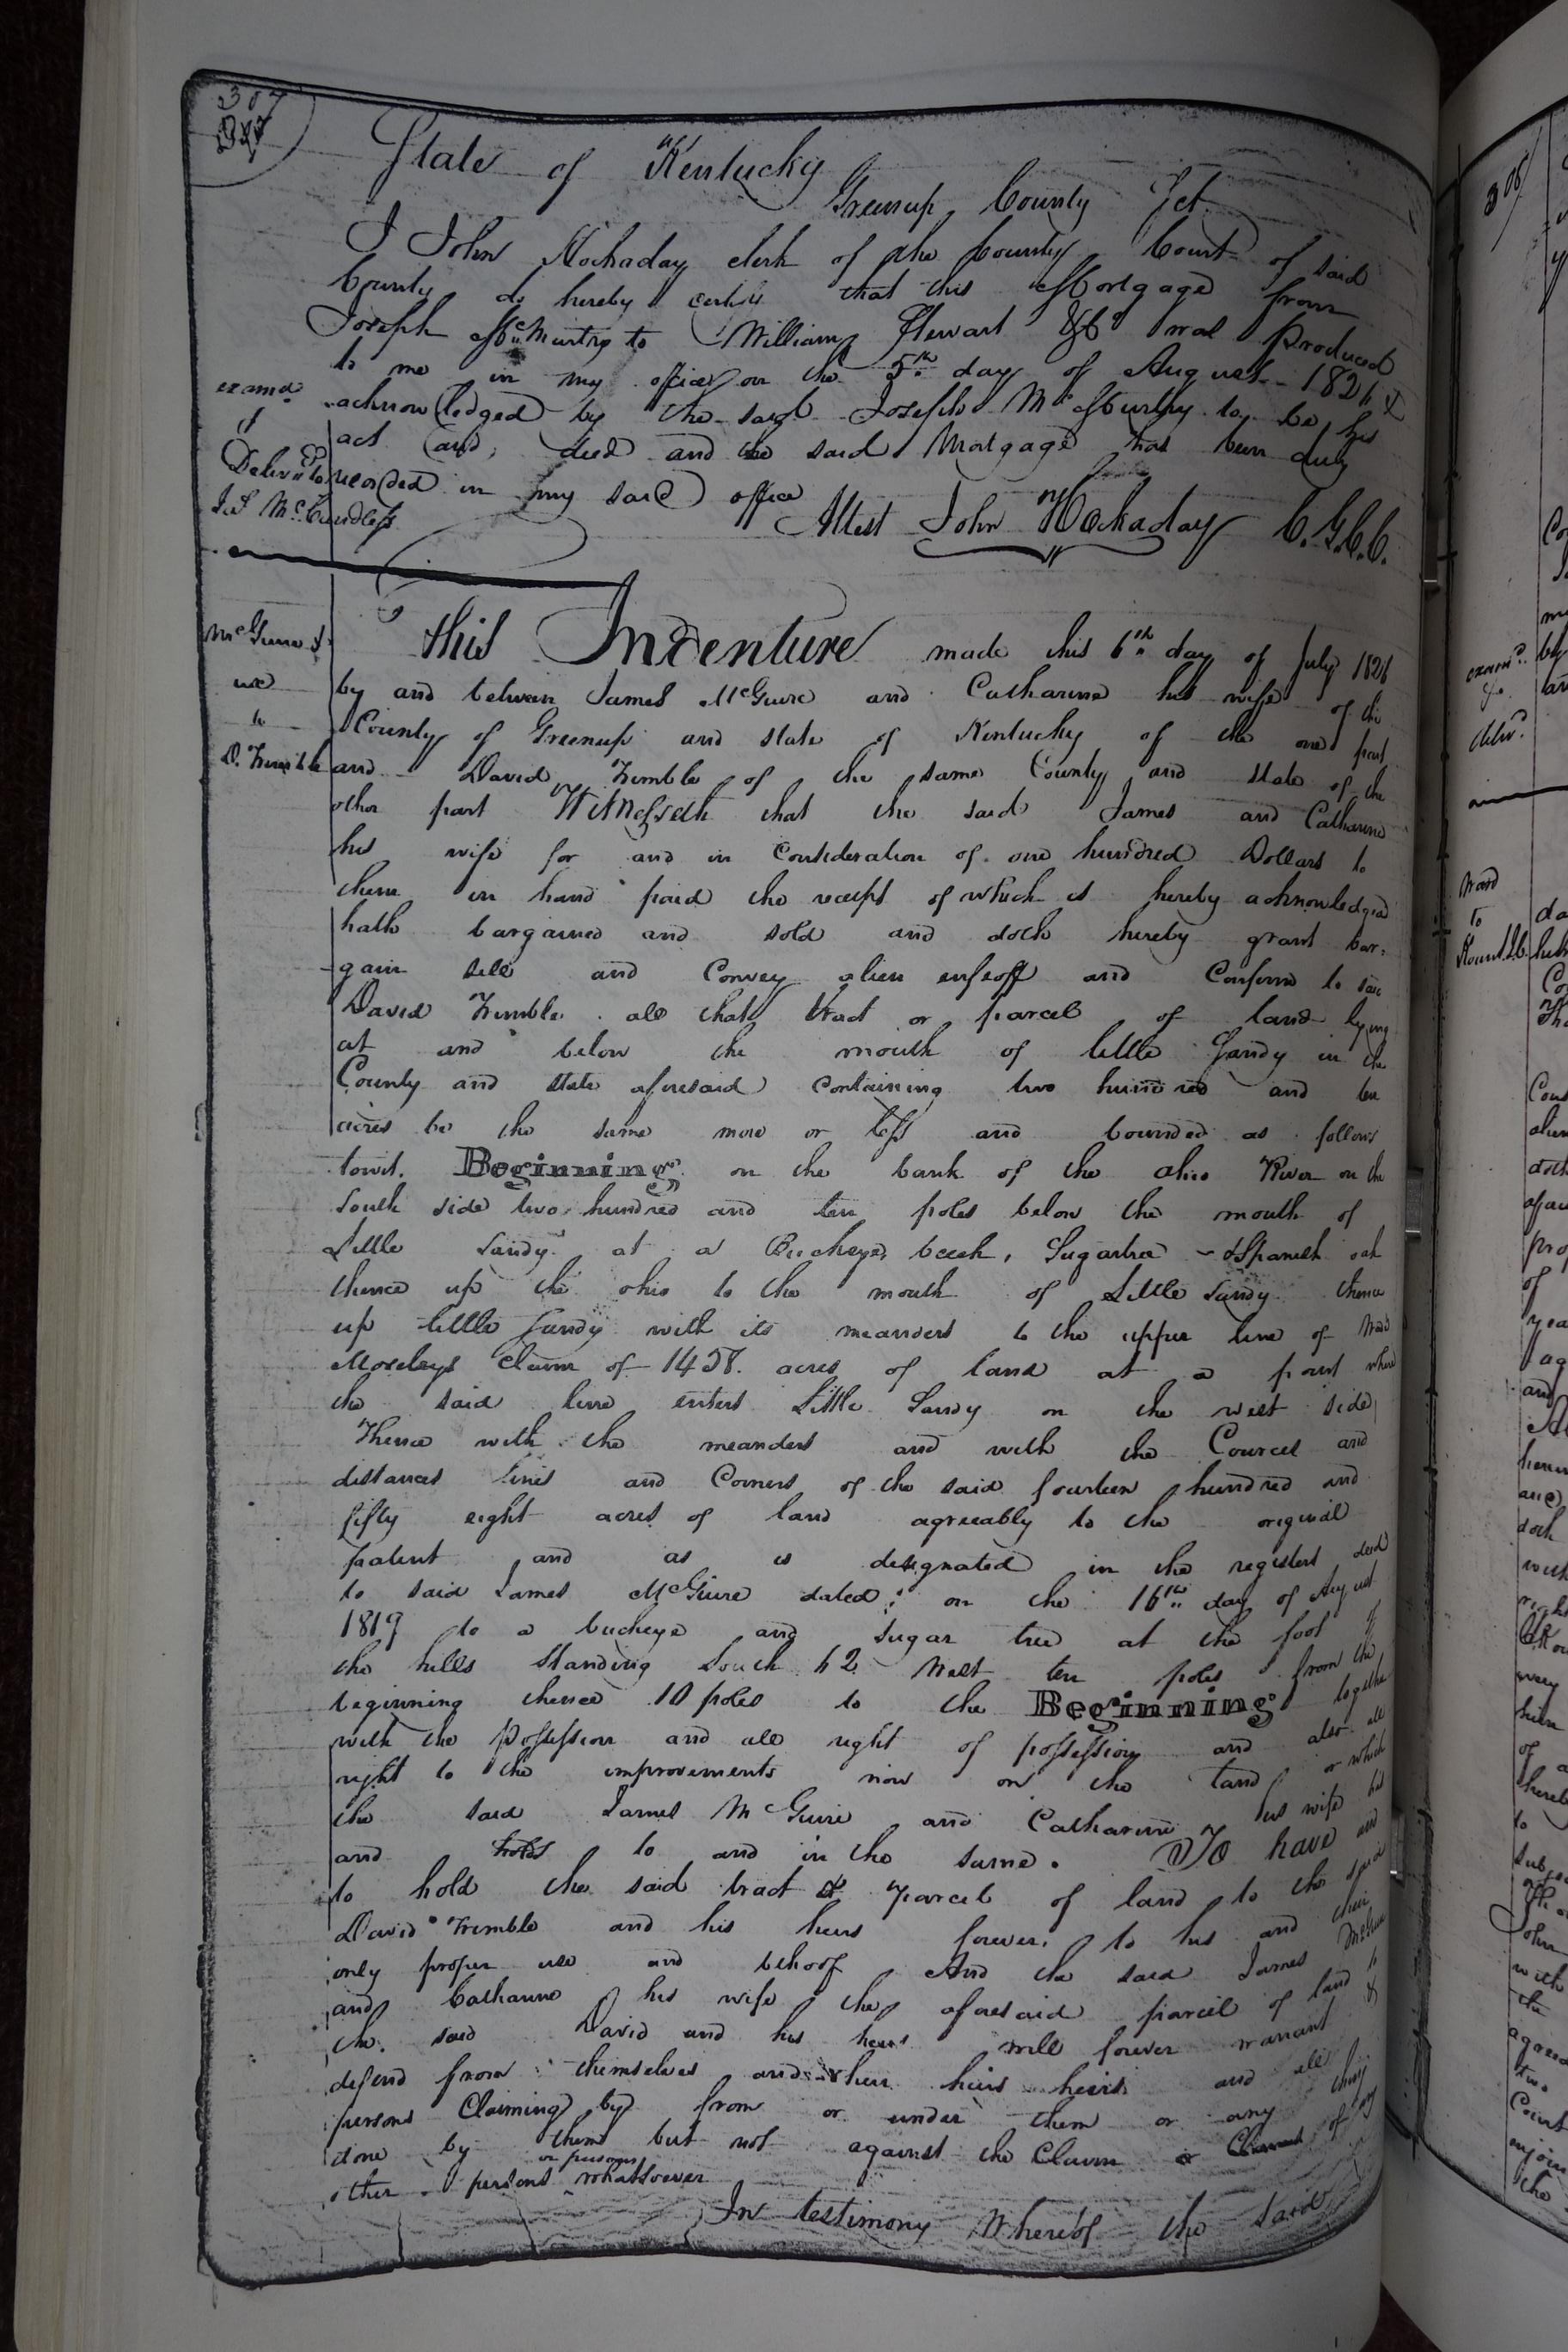 307
State of Kentucky
Greenup County Sct
I John Hockaday clerk of the County Court of said
County do hereby certify that this Mortgage from
Joseph McMurtry to William Stewart &Co was produced
to me in my office on the 5th day of August 1826 &
examd acknowledged by the said Joseph McMurtry to be his
act and deed and the said Mortgage has been duly
Delivd to recorded in my said office
McCandless
Attest John Hockaday C.G.C.C.
McGuire &
wife
to
D. Trimble
This Indenture made this 6th day of July 1826
by and between James McGuire and Catharine his wife of the
County of Greenup and state of Kentucky of the one part
and David Trimble of the same County and state of the
other part Witnesseth that the said James and Catharine
his wife for and in Consideration of one hundred Dollars to
them in hand paid the receipt of which is hereby acknowledged
hath bargained and sold and doth hereby grant bar-
-gain sell and Convey alien enfeoff and Confirm to said
David Trimble all that tract or parcel of land lying
at and below the mouth of little Sandy in the
County and state aforesaid containing two hundred and ten
acres be the same more or less and bounded as follows
towit. Beginning on the bank of the ohio River on the
South side two hundred and ten poles below the mouth of
Little Sandy at a Buckeye, beech, Sugartree & Spanish oak
thence up the ohio to the mouth of Little Sandy thence
up little Sandy with its meanders to the upper line of
Moseleys claim of 1458 acres of land at a point where
the said line enters Little Sandy on the west side
Thence with the meanders and with the Courses and
distances lines and Corners of the said fourteen hundred and
fifty eight acres of land agreeably to the original
patent and as is designated in the registers deed
to said James McGuire dated on the 16th day of August
1819 to a buckeye and sugar tree at the foot of
the hills standing South 62 West ten poles from the
beginning thence 10 poles to the Beginning together
with the possession and all right of possession and also all
right to the improvements now on the land or which
the said James McGuire and Catharine his wife has
and holds to and in the same. To have and
to hold the said tract & parcel of land to the said
David Trimble and his heirs forever, to his and their
only proper use and behoof And the said James McGuire
and Catharine his wife the aforesaid parcel of land to
the said David and his heirs will forever warrant &
defend from themselves and their heirs heirs and all
persons Claiming by from or under them or any thing
done by them but not against the Claim or Claims of any
other persons or persons whatsoever
In testimony Whereof the said